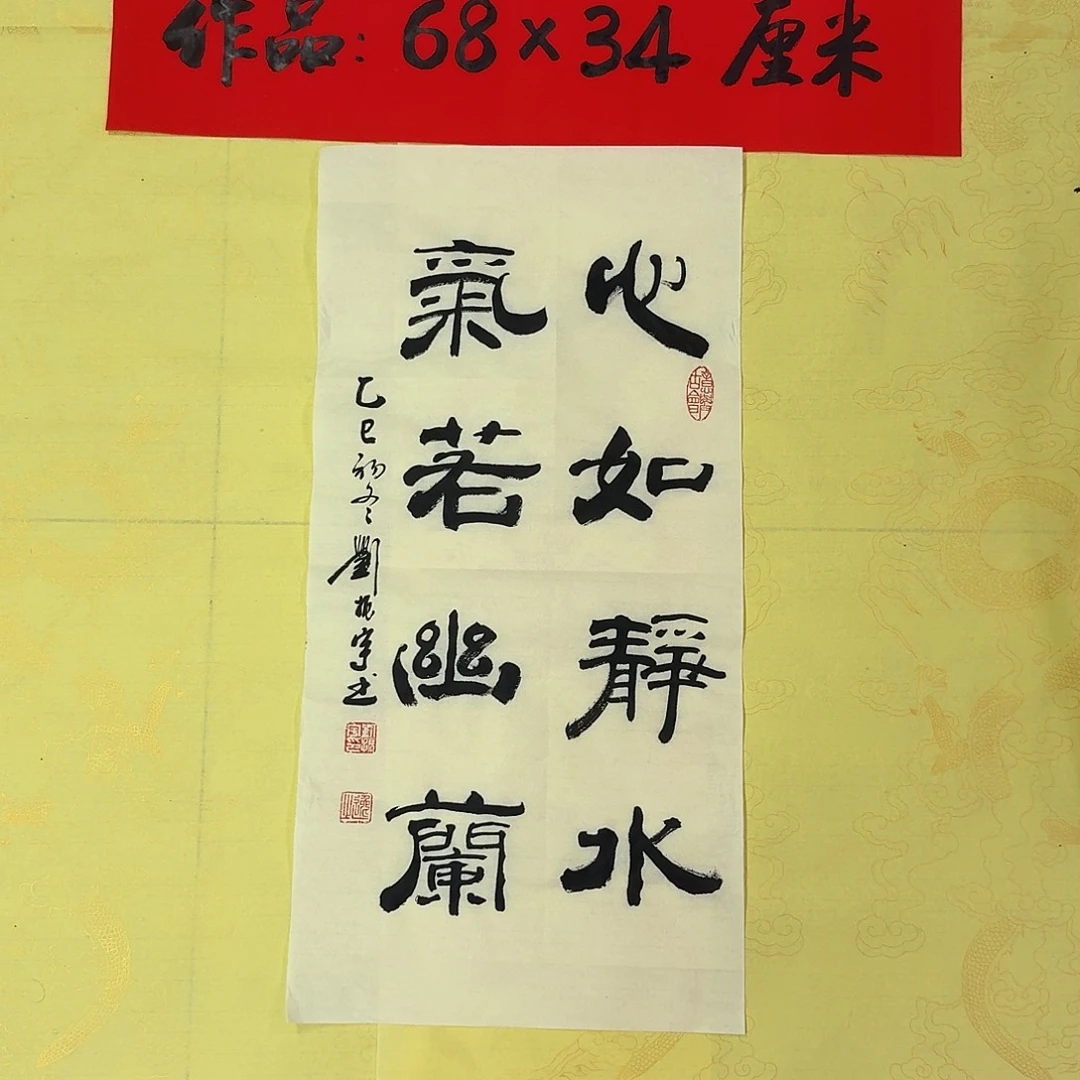 作品：68×34 厘米
心如靜水
氣若幽蘭
乙巳初冬劉振寧书